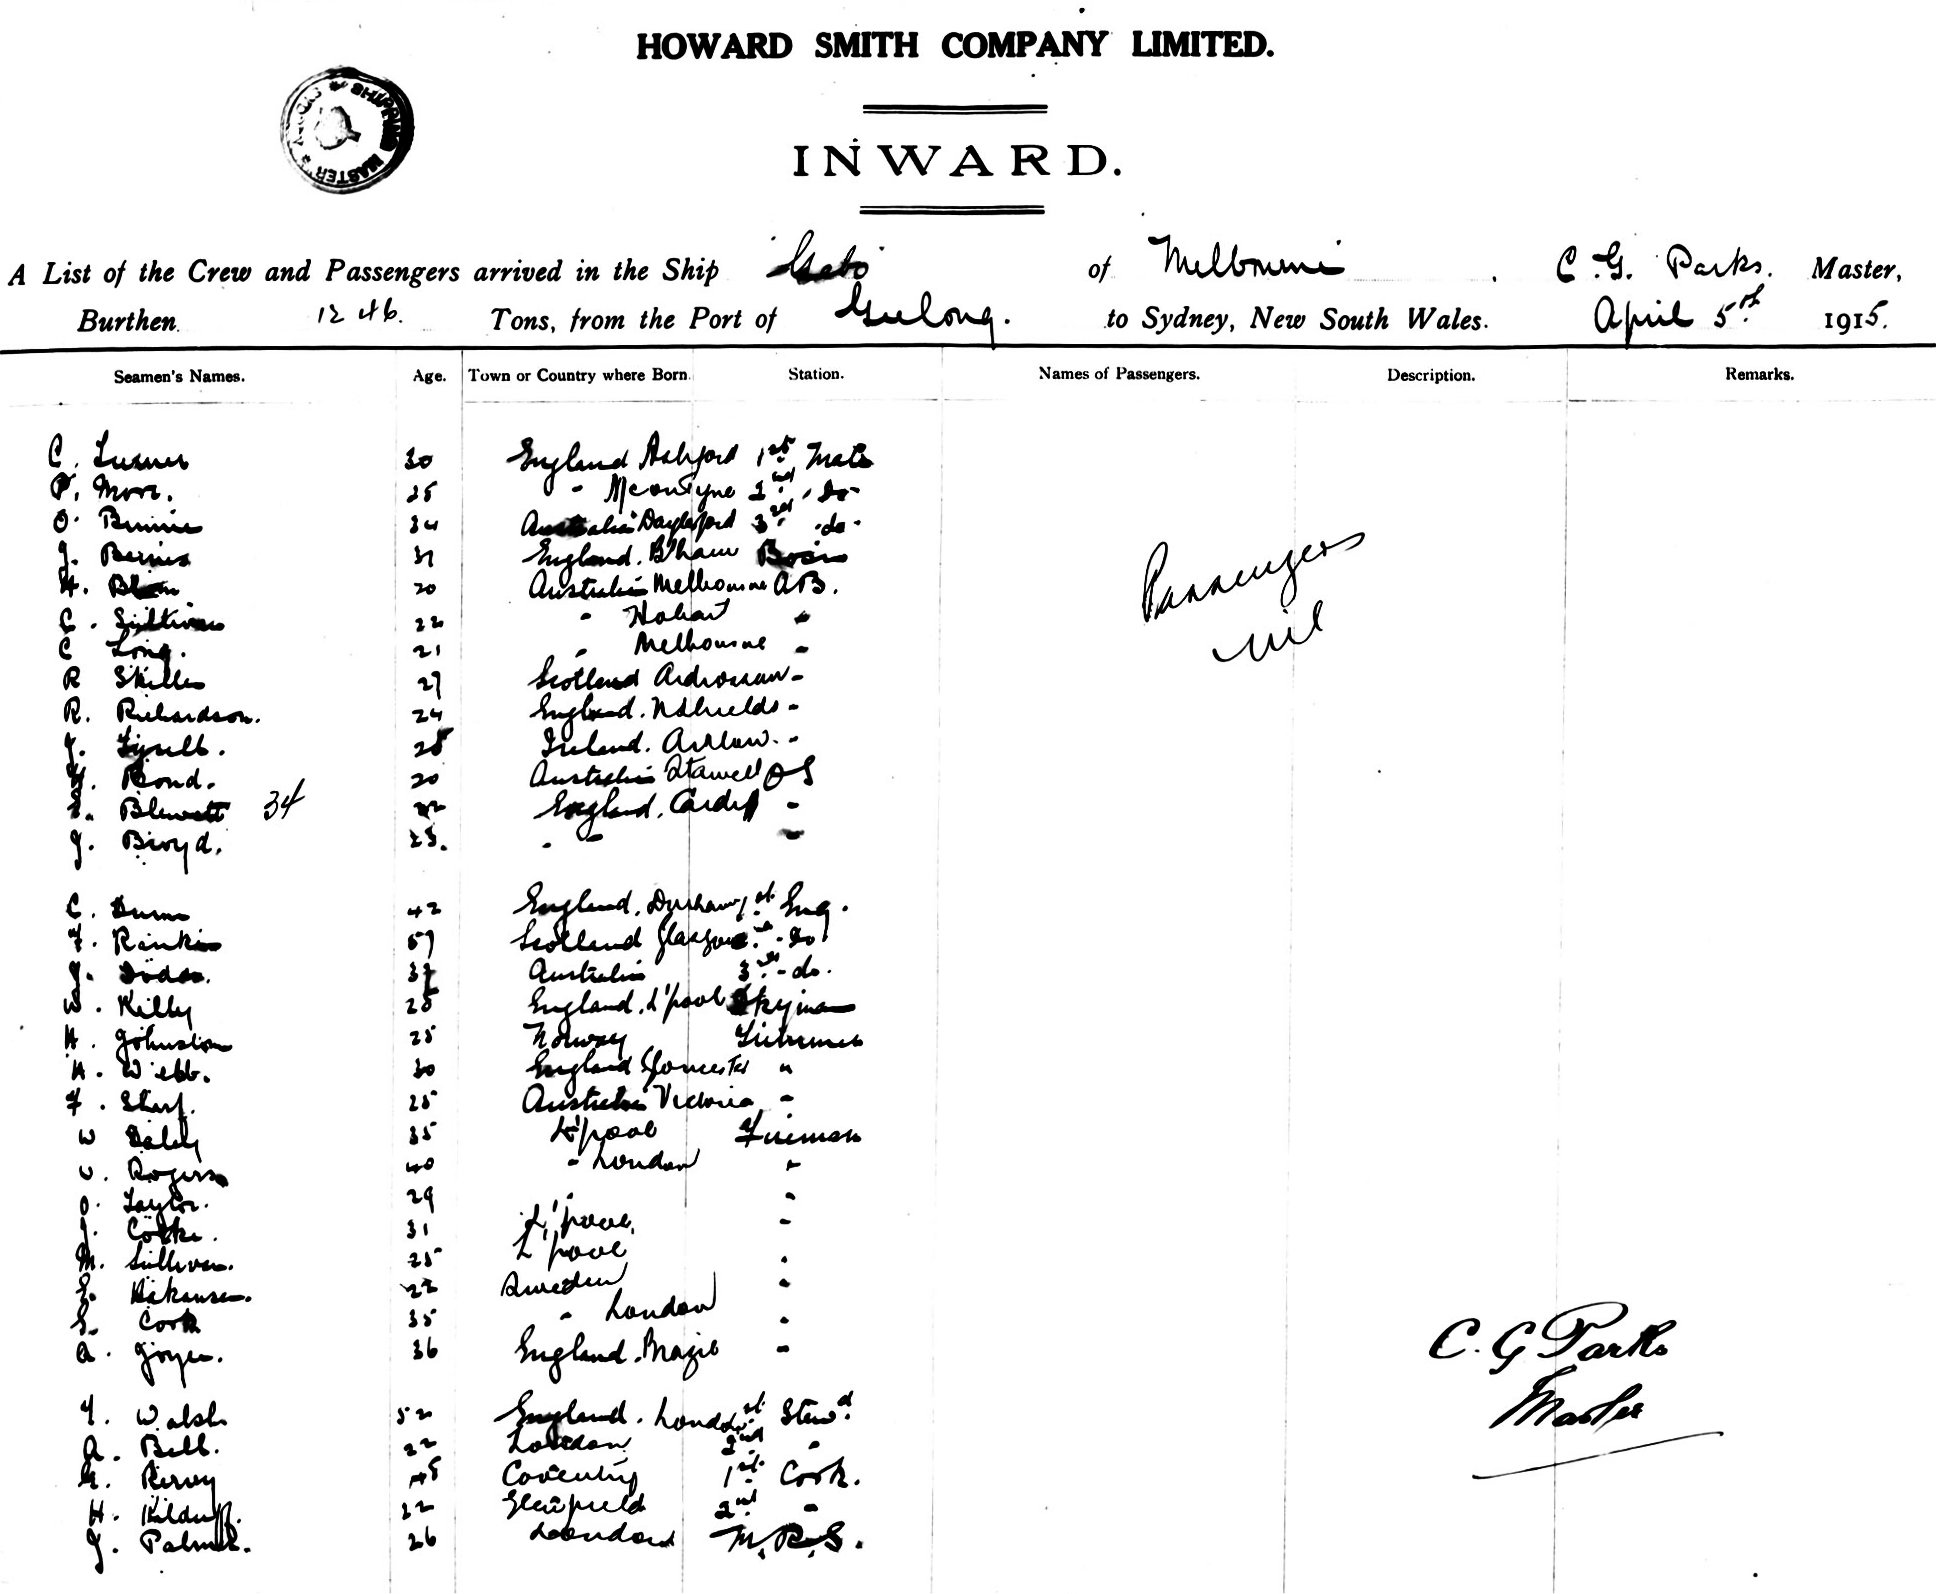 HOWARD SMITH COMPANY LIMITED.
SHIPPING MASTER
INWARD.
A List of the Crew and Passengers arrived in the Ship Gabo of Melbourne C. G. Parks. Master,
Burthen 1246. Tons, from the Port of Geelong. to Sydney, New South Wales. April 5th 1915.
Seamen's Names. Age. Town or Country where Born. Station. Names of Passengers. Description. Remarks.
C. Turner 30 England Ashford 1st Mate
P. Moor. 25 " 2nd " do
O. 34 Australia Daylesford 3rd do
J. 31 England. B'ham Bosn
H. 20 Australia Melbourne AB.
C. Sullivan 22 " Hobart "
C Long. 21 " Melbourne "
R Skilla 27 Scotland Ardrossan "
R. Richardson. 24 England. N Shields "
J. Tyrell. 28 Ireland. Arklow. "
Bond. 20 Australia Stawell OS
Blewett 34 22 England. Cardiff "
J. Boyd. 25. " " "
Passengers
nil
C. Dunn 42 England. Durham 1st Eng.
F. Rankin 57 Scotland Glasgow 2nd - do
J. Dodds. 37 Australia 3rd - do.
W. Kelly 28 England. L'pool
H. Johnston 25 Norway
H. Webb. 30 England Gloucester "
F. Sharp. 25 Australia Victoria "
W Daley 35 L'pool Fireman
Rogers 40 " London "
Taylor. 29 " "
J. Cooke. 31 L'pool "
M. Sullivan. 25 L'pool "
Hakansen. 22 Sweden "
Cook 35 " London "
A. Joyce. 36 England. "
Walsh 52 England. London 1st Stewd.
A. Bell. 22 London 2nd "
45 Coventry 1st Cook.
H. Kilduff. 22 Glenfield 2nd "
J. Palmer. 26 London M.R.S.
C. G Parks
Master